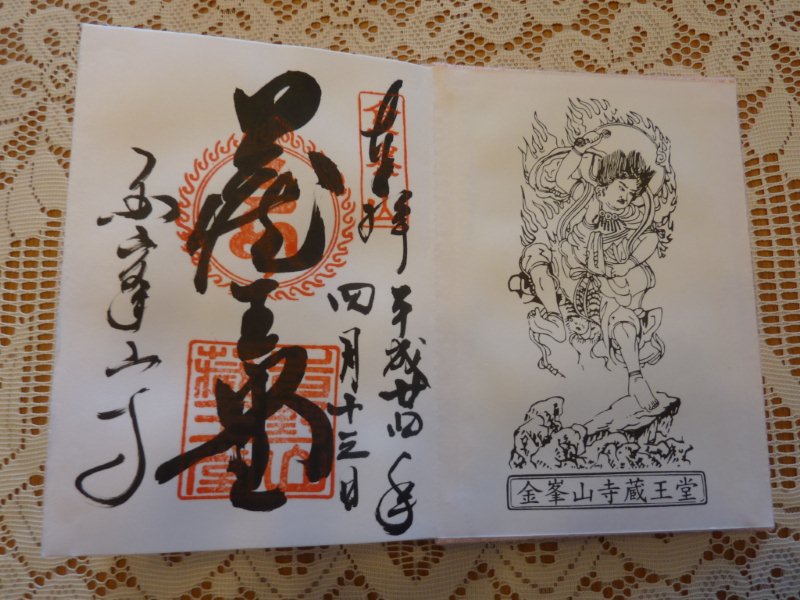 奉拝
平成廿四年
四月十三日
蔵王堂
金峯山寺
金峯山寺蔵王堂